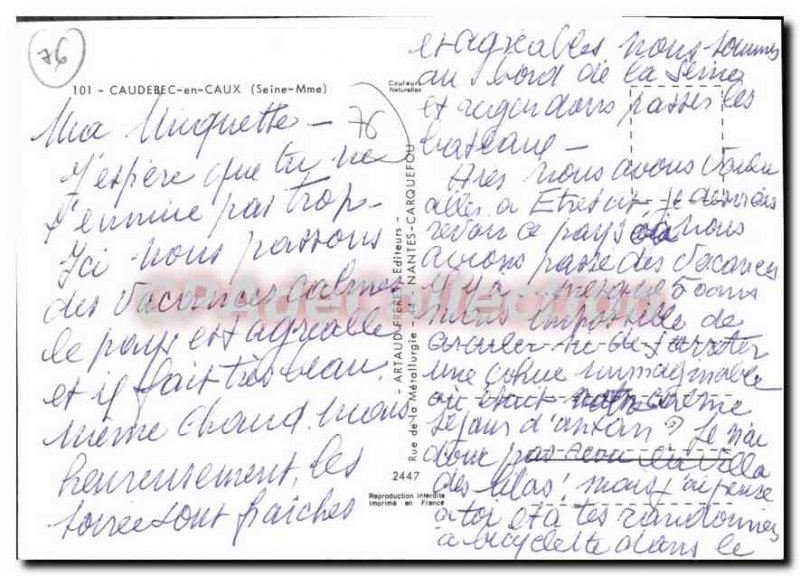 76
101 - CAUDEBEC-en-CAUX (Seine-Mme)
Couleurs
Naturelles
Ma Minquette -
76
J'espère que tu ne
t'ennuie pas trop -
Ici nous passons
des vacances calmes
le pays est agréable
et il fait très beau
même chaud, mais
heureusement, les
soirée sont fraîches
ARTAUD FRERES Editeurs -
Rue de la Métallurgie - 44 - NANTES-CARQUEFOU
2447
Reproduction interdite
Imprimé en France
et agréables nous sommes
au bord de la Seine
et regardons passer les
bateaux -
nous avons voulu
aller à Etretat je désirais
revoir ce pays où nous
avions passé des vacances
il y a presque 50 ans
mais impossible de
circuler ni de s'arrêter
une cohue inimaginable
où était notre calme
séjour d'antan ? Je n'ai
donc pas revu la villa
des lilas ! mais j'ai pensé
à toi et à tes randonnées
à bicyclette dans le
CPAdeCollection